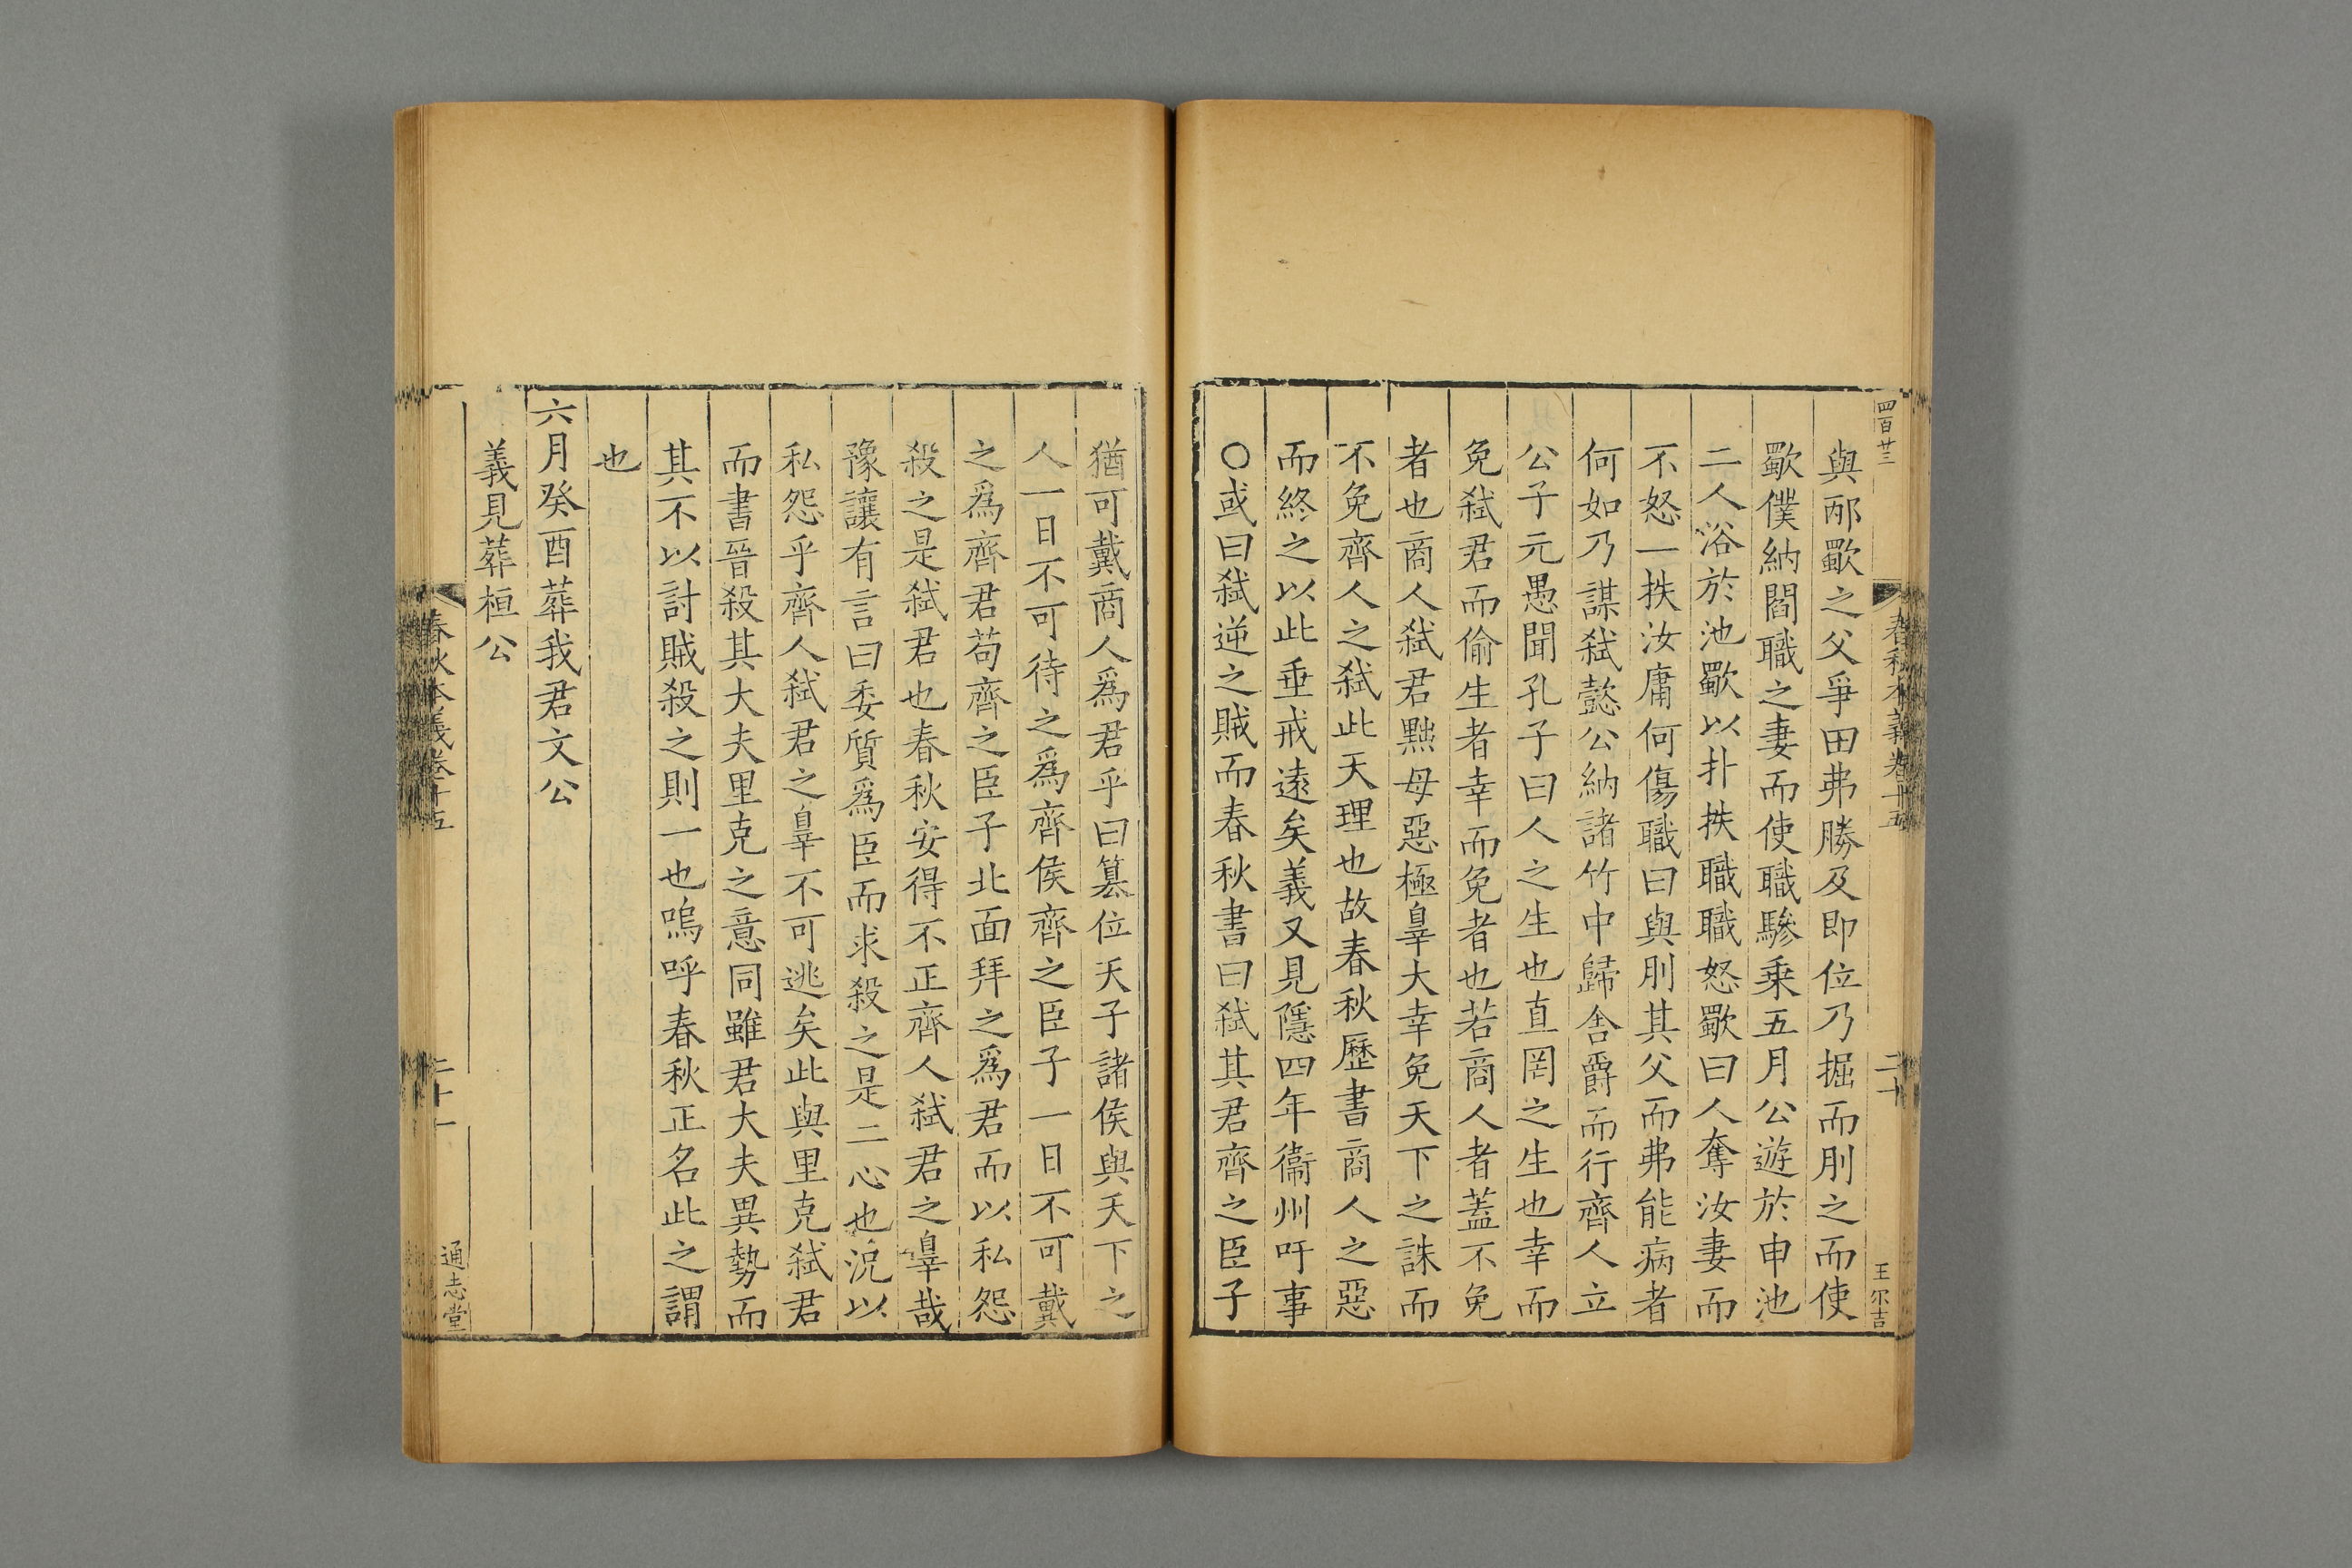 四百廿三
春秋本義卷十五
二十
王尔吉
與邴歜之父爭田弗勝及即位乃掘而刖之而使
歜僕納閻職之妻而使職驂乗五月公遊於申池
二人浴於池歜以扑抶職職怒歜曰人奪汝妻而
不怒一抶汝庸何傷職曰與刖其父而弗能病者
何如乃謀弑懿公納諸竹中歸舍爵而行齊人立
公子元愚聞孔子曰人之生也直罔之生也幸而
免弑君而偷生者幸而免者也若商人者蓋不免
者也商人弑君㸃母惡極辠大幸免天下之誅而
不免齊人之弑此天理也故春秋歷書商人之惡
而終之以此垂戒遠矣義又見隱四年衞州吁事
○或曰弑逆之賊而春秋書曰弑其君齊之臣子
猶可戴商人爲君乎曰簒位天子諸侯與天下之
人一日不可待之爲齊侯齊之臣子一日不可戴
之爲齊君苟齊之臣子北面拜之爲君而以私怨
殺之是弑君也春秋安得不正齊人弑君之辠哉
豫讓有言曰委質爲臣而求殺之是二心也況以
私怨乎齊人弑君之辠不可逃矣此與里克弑君
而書晉殺其大夫里克之意同雖君大夫異勢而
其不以討賊殺之則一也嗚呼春秋正名此之謂
也
六月癸酉葬我君文公
義見葬桓公
春秋本義卷十五
二十一
通志堂